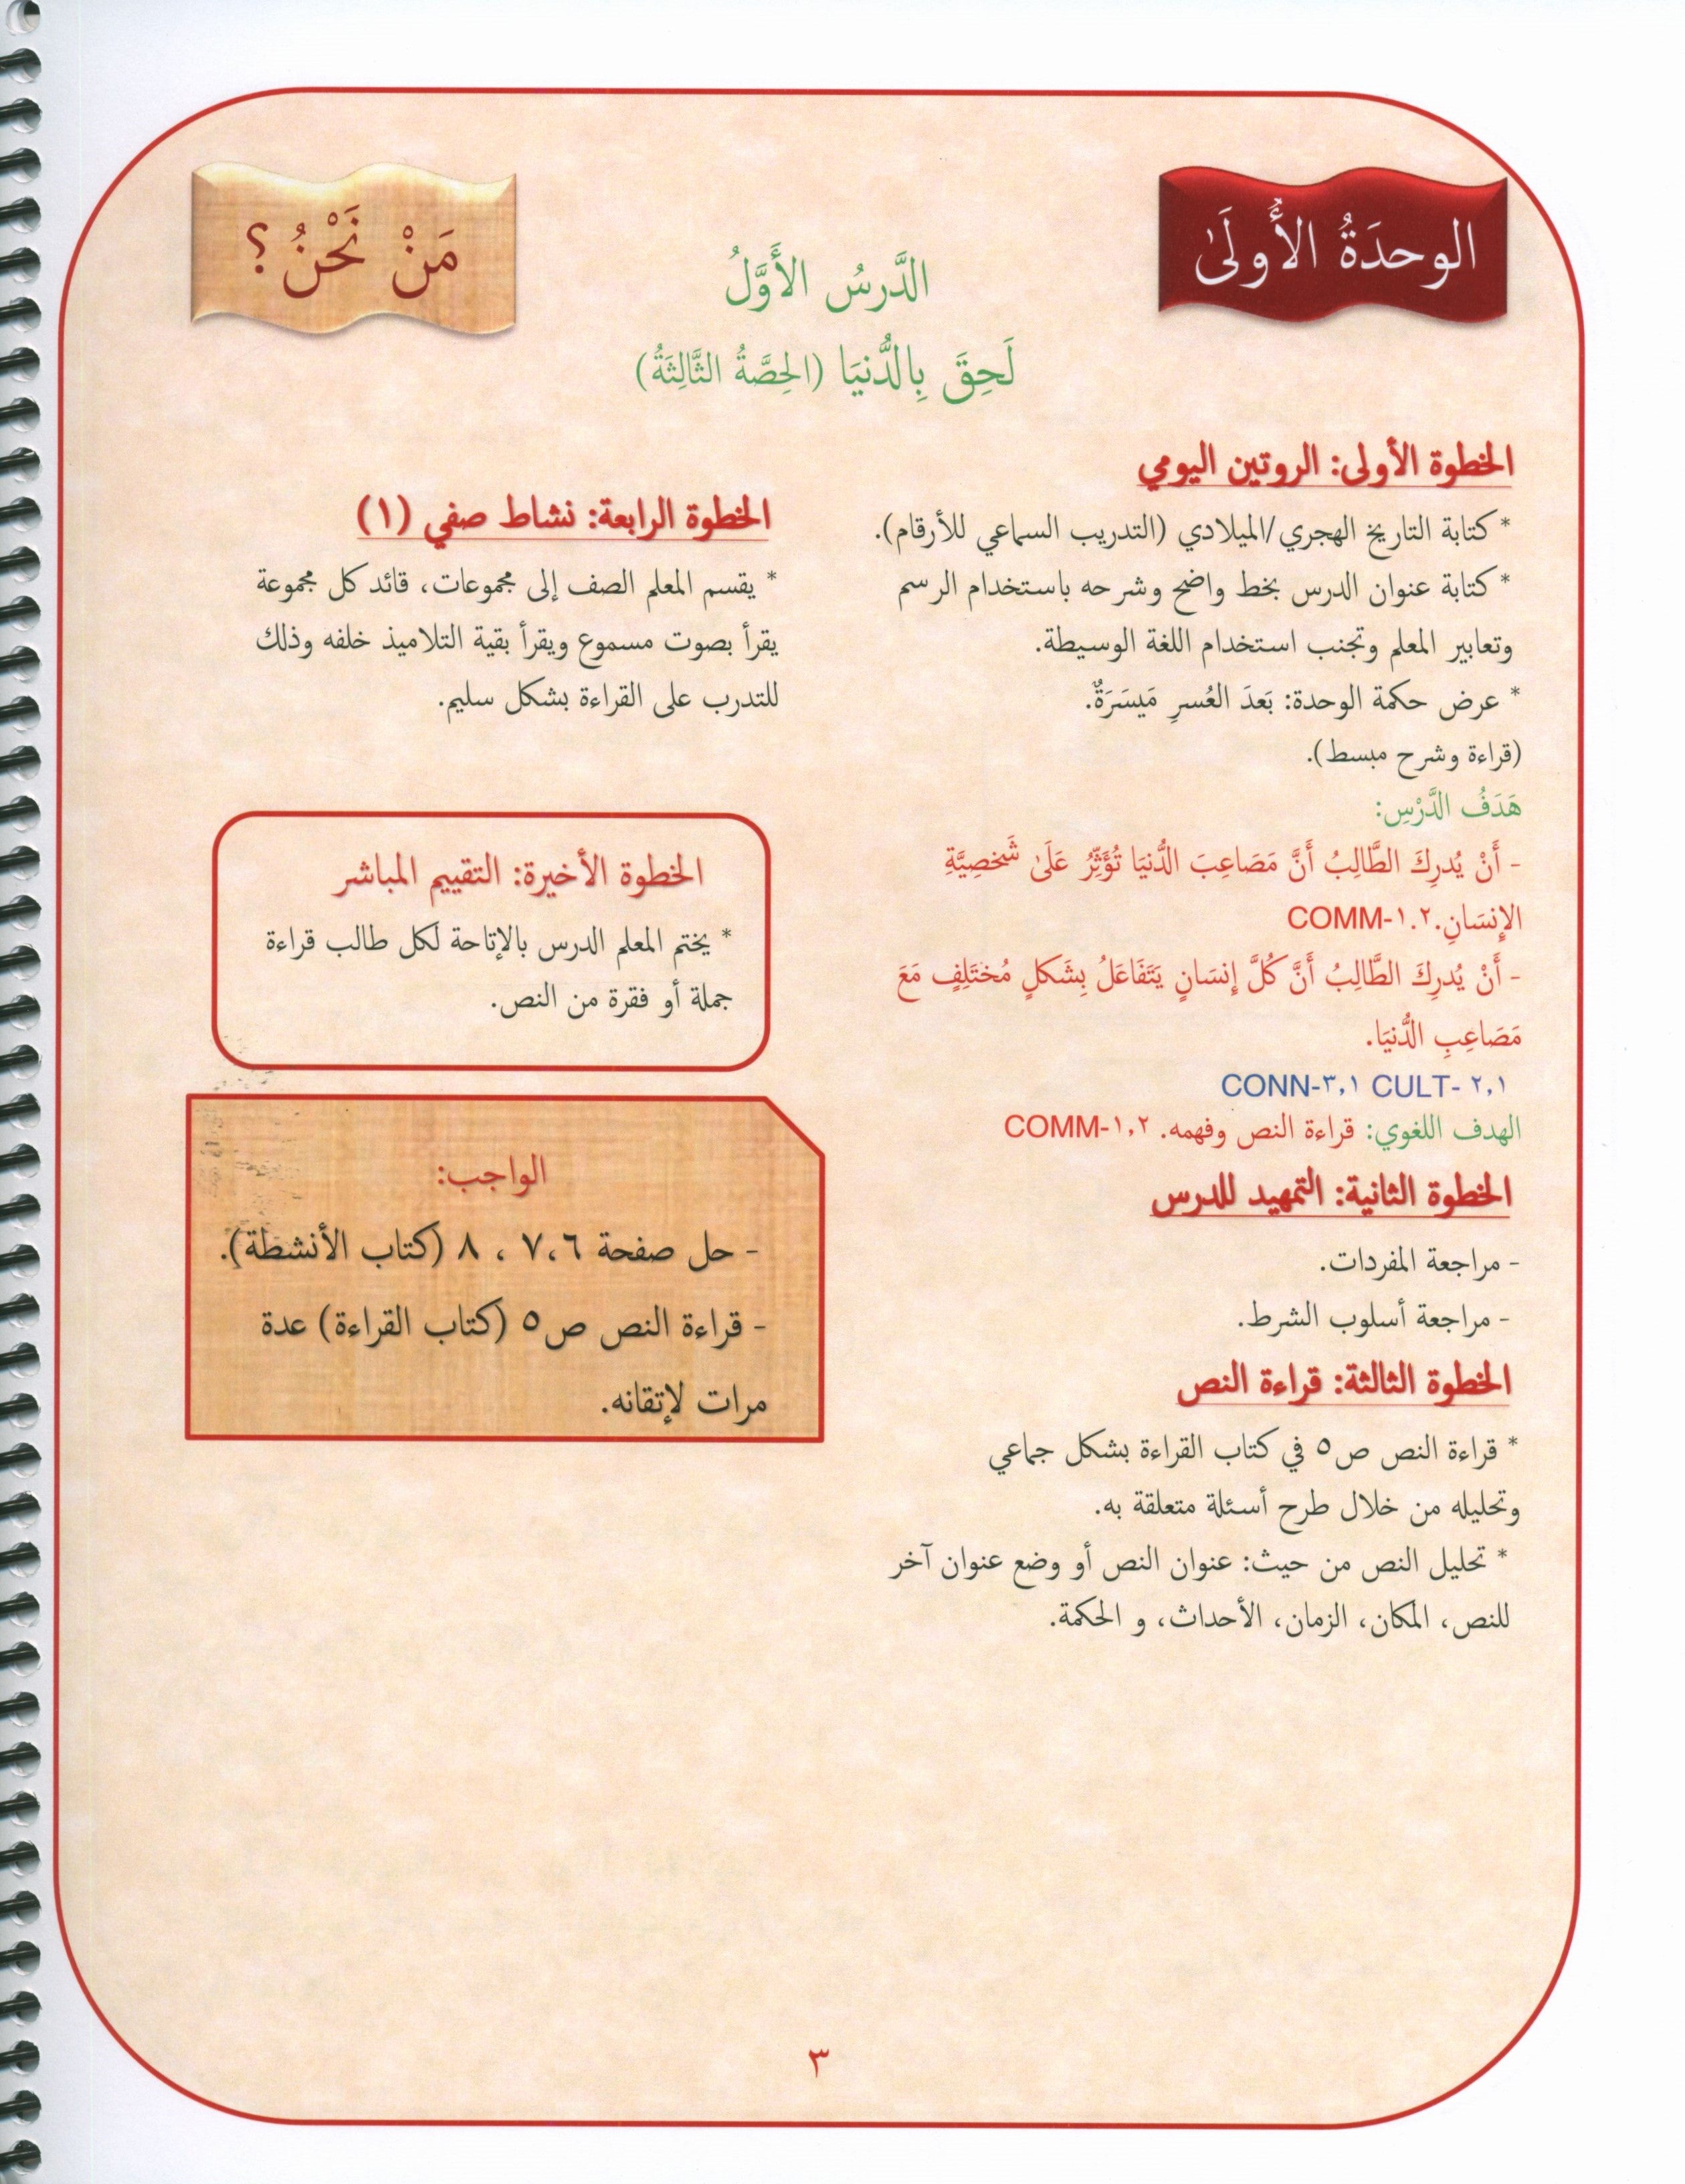 الوحدَةُ الأُولَىٰ
مَنْ نَحْنُ؟
الدَّرسُ الأَوَّلُ
لَحِقَ بِالدُّنيَا (الحِصَّةُ الثَّالِثَةُ)
الخطوة الأولى: الروتين اليومي
* كتابة التاريخ الهجري/الميلادي (التدريب السماعي للأرقام).
* كتابة عنوان الدرس بخط واضح وشرحه باستخدام الرسم
وتعابير المعلم وتجنب استخدام اللغة الوسيطة.
* عرض حكمة الوحدة: بَعدَ العُسرِ مَيسَرَةٌ.
(قراءة وشرح مبسط).
هَدَفُ الدَّرْسِ:
- أَنْ يُدرِكَ الطَّالِبُ أَنَّ مَصَاعِبَ الدُّنيَا تُؤَثِّرُ عَلَىٰ شَخصِيَّةِ
الإِنسَانِ.COMM-١.٢
- أَنْ يُدرِكَ الطَّالِبُ أَنَّ كُلَّ إِنسَانٍ يَتَفَاعَلُ بِشَكلٍ مُختَلِفٍ مَعَ
مَصَاعِبِ الدُّنيَا.
CONN-٣,١ CULT- ٢,١
الهدف اللغوي: قراءة النص وفهمه. COMM-١,٢
الخطوة الثانية: التمهيد للدرس
- مراجعة المفردات.
- مراجعة أسلوب الشرط.
الخطوة الثالثة: قراءة النص
* قراءة النص ص٥ في كتاب القراءة بشكل جماعي
وتحليله من خلال طرح أسئلة متعلقة به.
* تحليل النص من حيث: عنوان النص أو وضع عنوان آخر
للنص، المكان، الزمان، الأحداث، و الحكمة.
الخطوة الرابعة: نشاط صفي (١)
* يقسم المعلم الصف إلى مجموعات، قائد كل مجموعة
يقرأ بصوت مسموع ويقرأ بقية التلاميذ خلفه وذلك
للتدرب على القراءة بشكل سليم.
الخطوة الأخيرة: التقييم المباشر
* يختم المعلم الدرس بالإتاحة لكل طالب قراءة
جملة أو فقرة من النص.
الواجب:
- حل صفحة ٧،٦ ، ٨ (كتاب الأنشطة).
- قراءة النص ص٥ (كتاب القراءة) عدة
مرات لإتقانه.
٣